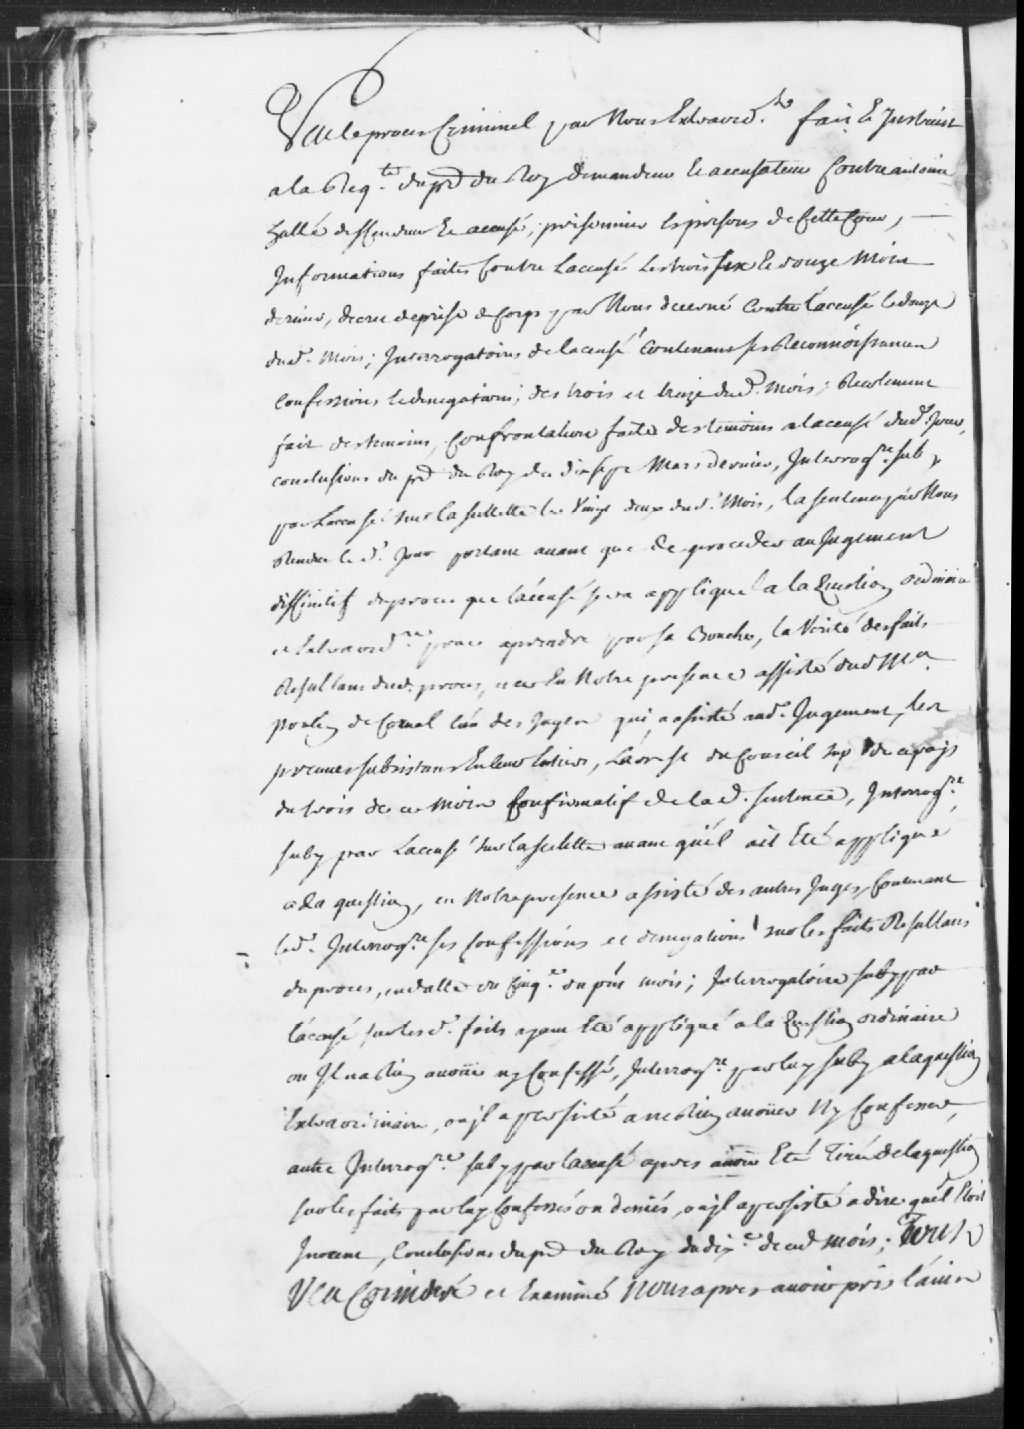 Veu le proces Criminel par Nous Extraord.re fait & Instruit
a la Req.te du pr du Roy demandeur & accusateur Contre antoine
hallé deffendeur & accusé, prisonnier es prisons de Cette Cour,
Informations faites Contre L'accusé Les trois six & douze Mars
dernier, decret de prise de Corps par Nous decerné Contre l'accusé le douze
dud. mois; Interrogatoires de lacusé Contenans ses Reconnoissances
Confessions & denegations, des trois et treize dud. mois; Recolement
fait des temoins, Confrontation faite des temoins a lacusé dud. Jour,
conclusions du pr du Roy du dix sept Mars dernier, Interrog.re suby
par L'accusé sur la sellette le Vingt deux dud. Mois, la sentence par Nous
Rendue le d. Jour portant avant que de proceder au Jugement
diffinitif du proces que l'acusé sera appliqué a la Question ordinaire
et Extraord.re pour aprendre par sa Bouche, la Verité des faits
Resultans dud. proces, en Notre presence assisté dud Me.
poulin de Cournal l'un des Juges qui a assisté aud. Jugement, les
preuves subsistans En leur Entier, L'arrest du Conseil sup de ce pays
du trois de ce Mois Confirmatif de la d. sentence, Interrog.re
suby par L'accusé sur la sellette avant quil ait Eté appliqué
a la question, en Notre presence assisté des autres Juges, Contenant
led. Interrog.re ses Confessions et denegations sur les faits Resultans
du proces, en datte du Cinq.e du pnt mois; Interrogatoire suby par
l'acusé sur lesd. faits ayant Eté appliqué a la Question ordinaire
ou Il na Rien avoüé ny Confessé, Interrog.re par luy suby a la question
Extraordinaire, ou jl a persisté a ne Rien avoüer Ny Confesser,
autre Interrog.re suby par l'accusé apres avoir Eté Tiré de la question
sur les faits par luy Confessés ou deniés, ou jl a persisté a dire qu'il Etoit
Inocent, Conclusions du pr du Roy du dix.e de ced mois; Tout
Veu Considéré et Examiné Nous apres avoir pris l'avis